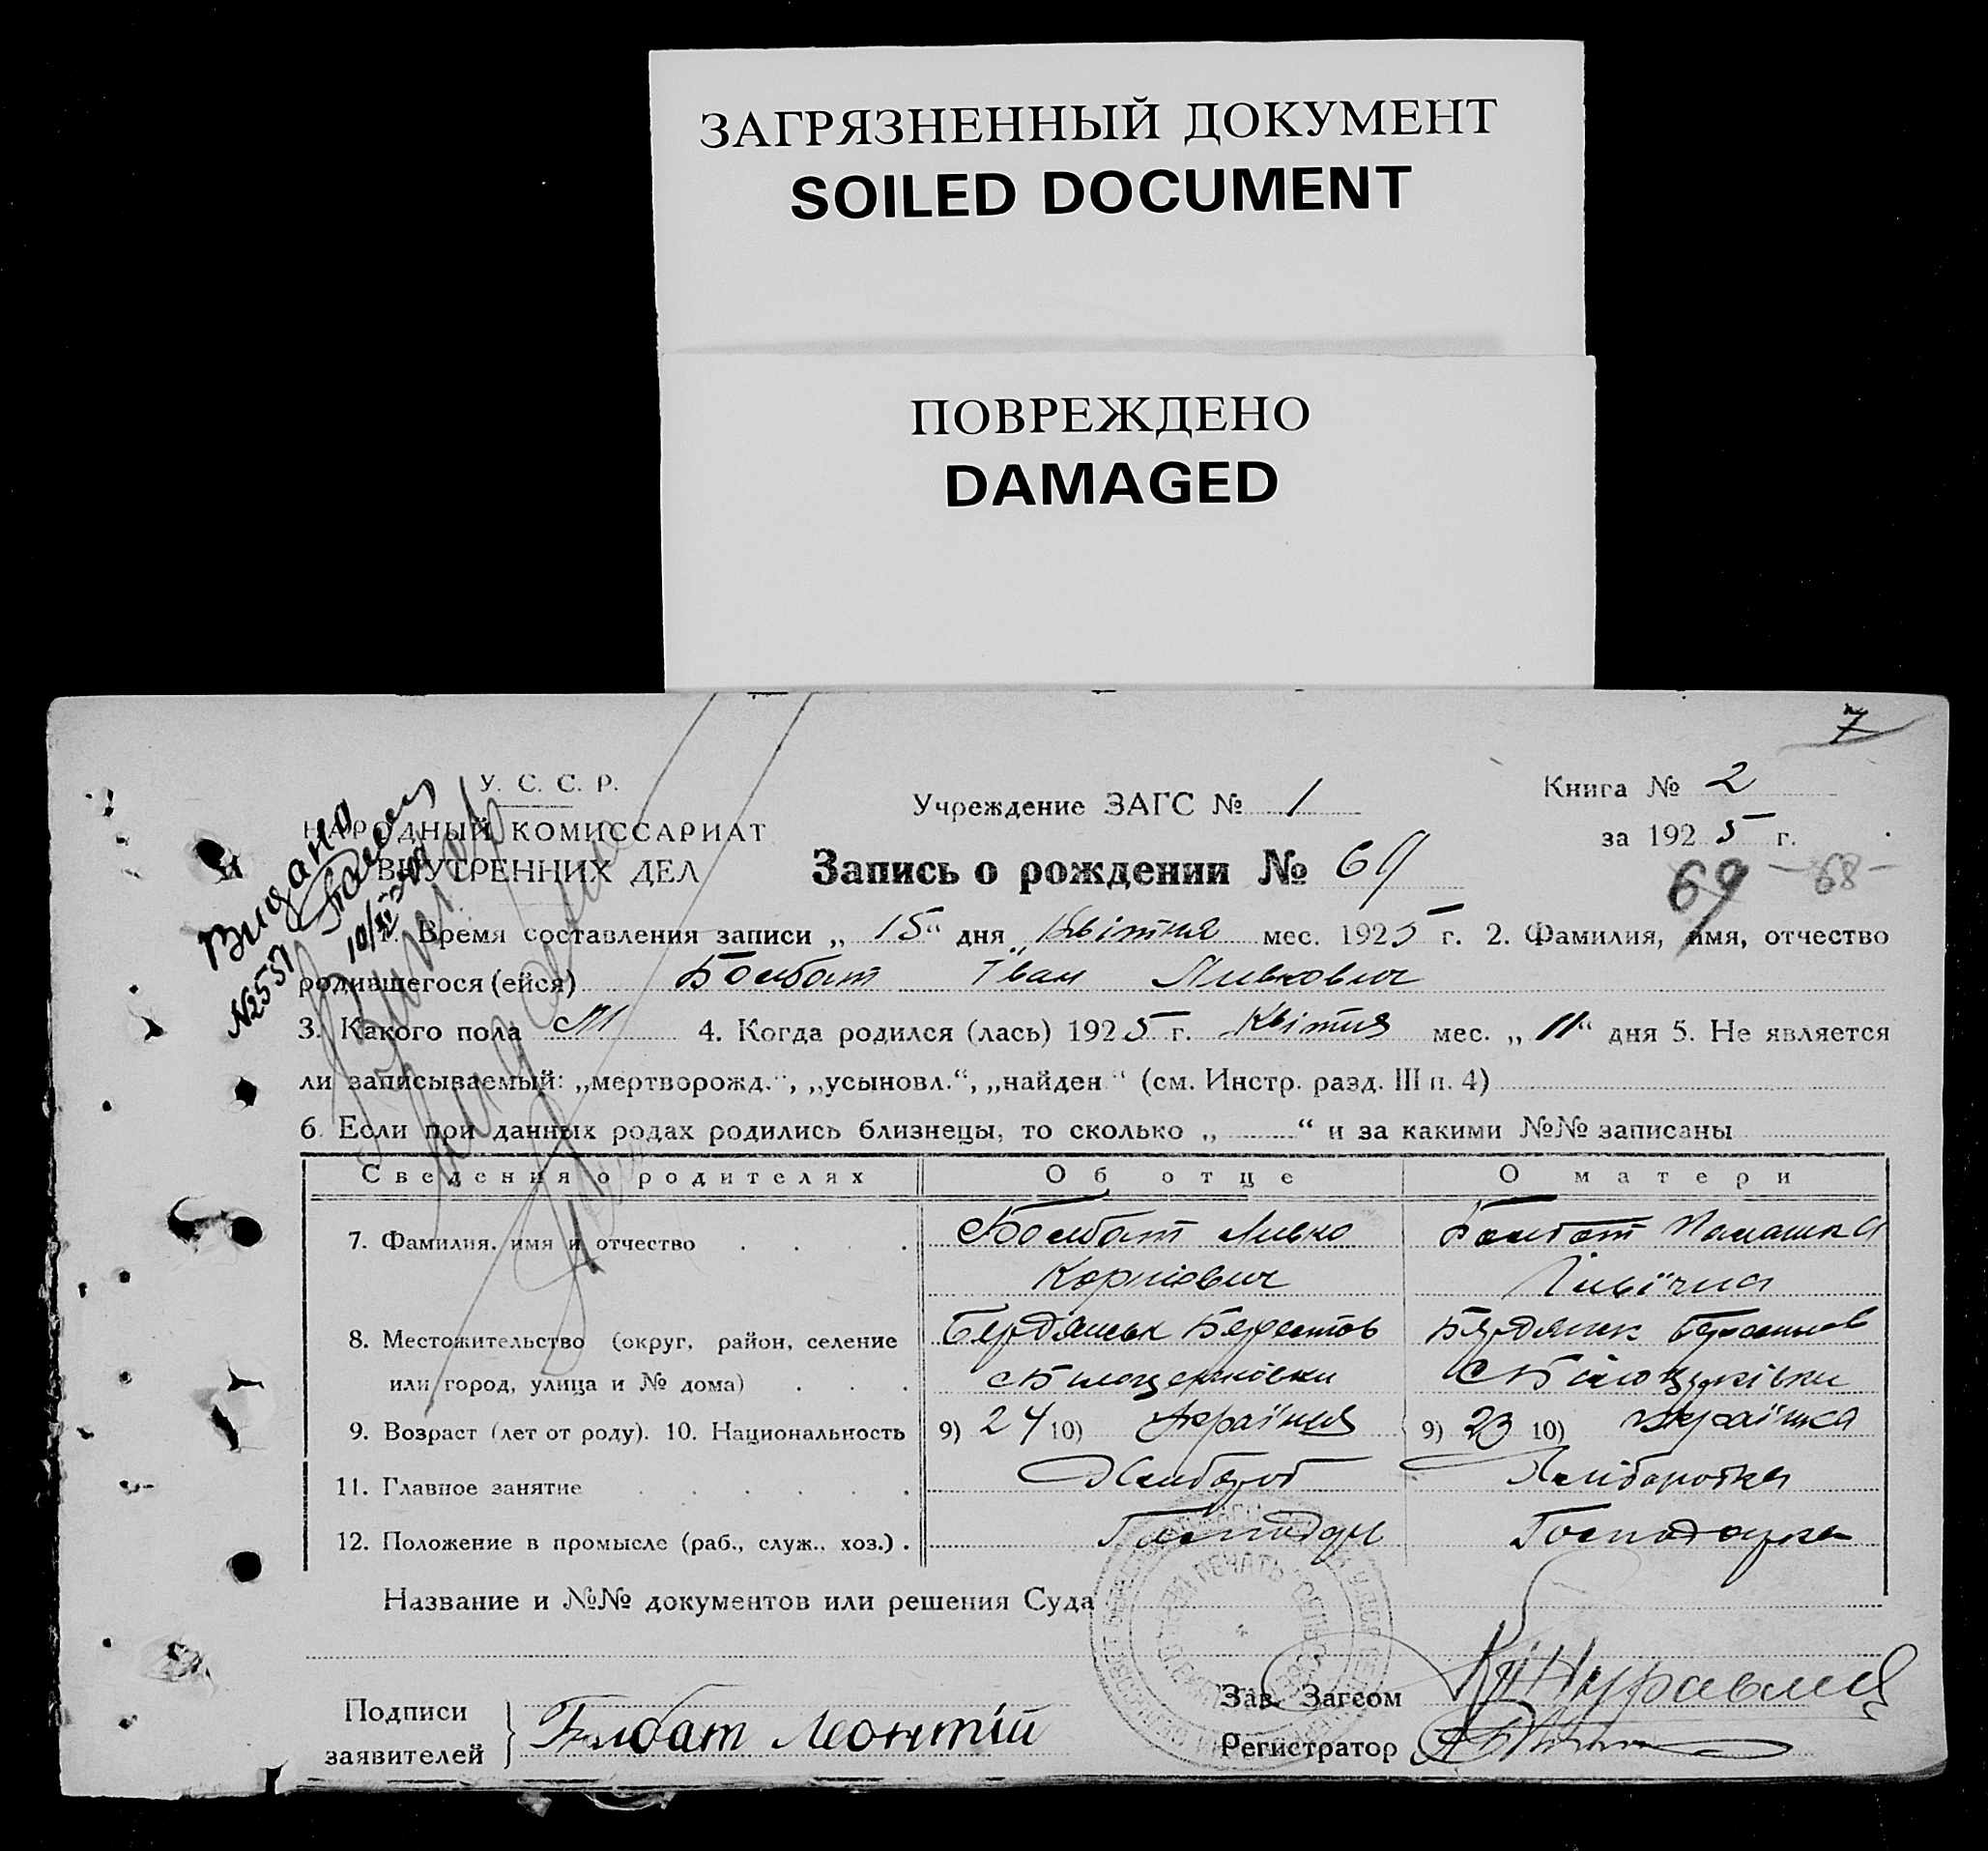 ЗАГРЯЗНЕННЫЙ ДОКУМЕНТ
SOILED DOCUMENT
ПОВРЕЖДЕНО
DAMAGED
7
У. С. С. Р.
НАРОДНЫЙ КОМИССАРИАТ
ВНУТРЕННИХ ДЕЛ
Учреждение ЗАГС № 1
Книга № 2
за 1925 г.
Запись о рождении № 69
69 -68-
Видано
№2551
1. Время составления записи „15“ дня Квітня мес. 1925 г. 2. Фамилия, имя, отчество
родившегося (ейся) Болбат Іван Левкович
3. Какого пола М 4. Когда родился (лась) 1925 г. Квітня мес. „11“ дня 5. Не является
ли записываемый: „мертворожд.“, „усыновл.“, „найден“ (см. Инстр. разд. III п. 4)
6. Если при данных родах родились близнецы, то сколько „ “ и за какими №№ записаны
Сведения о родителях Об отце О матери
7. Фамилия, имя и отчество Болбат Левко Болбат
Корніович
8. Местожительство (округ, район, селение Бердянськ Берестов Бердянск Берестов
или город, улица и № дома)
9. Возраст (лет от роду). 10. Национальность 9) 24 10) Українец 9) 23 10) Українка
11. Главное занятие Хлібороб Хліборобка
12. Положение в промысле (раб., служ., хоз.) Господар Господарка
Название и №№ документов или решения Суда
Подписи
заявителей Болбат Леонтій
Зав. Загсом Журавлев
Регистратор